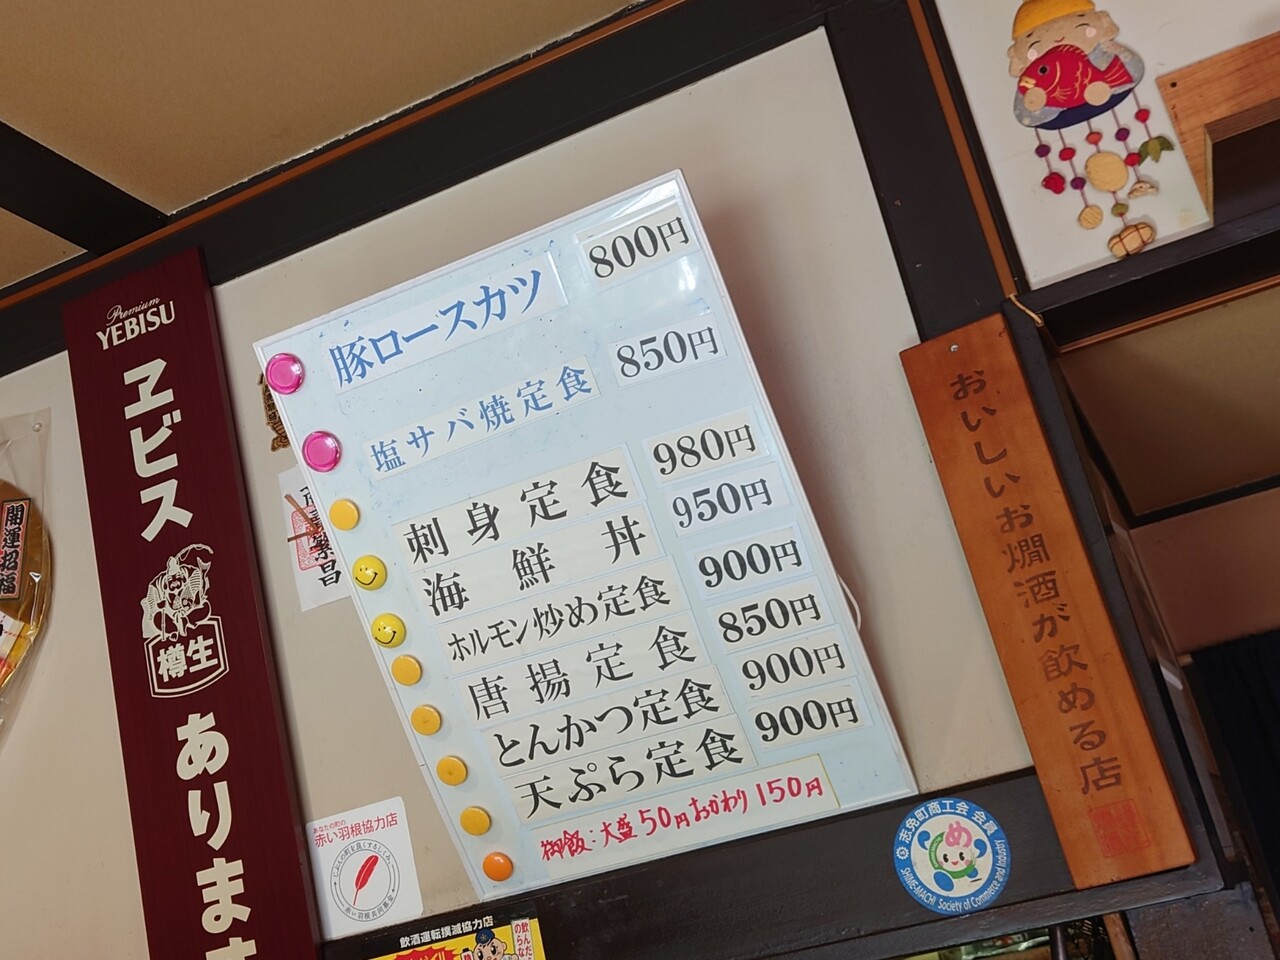 Premium
YEBISU
ヱビス
樽生
あります
開運招福
繁昌
豚ロースカツ 800円
塩サバ焼定食 850円
刺身定食 980円
海鮮丼 950円
ホルモン炒め定食 900円
唐揚定食 850円
とんかつ定食 900円
天ぷら定食 900円
御飯:大盛50円おかわり150円
おいしいお燗酒が飲める店
あなたの町の
赤い羽根協力店
志免町商工会 会員
SHIME-MACHI Society of Commerce and Industry
飲酒運転撲滅協力店